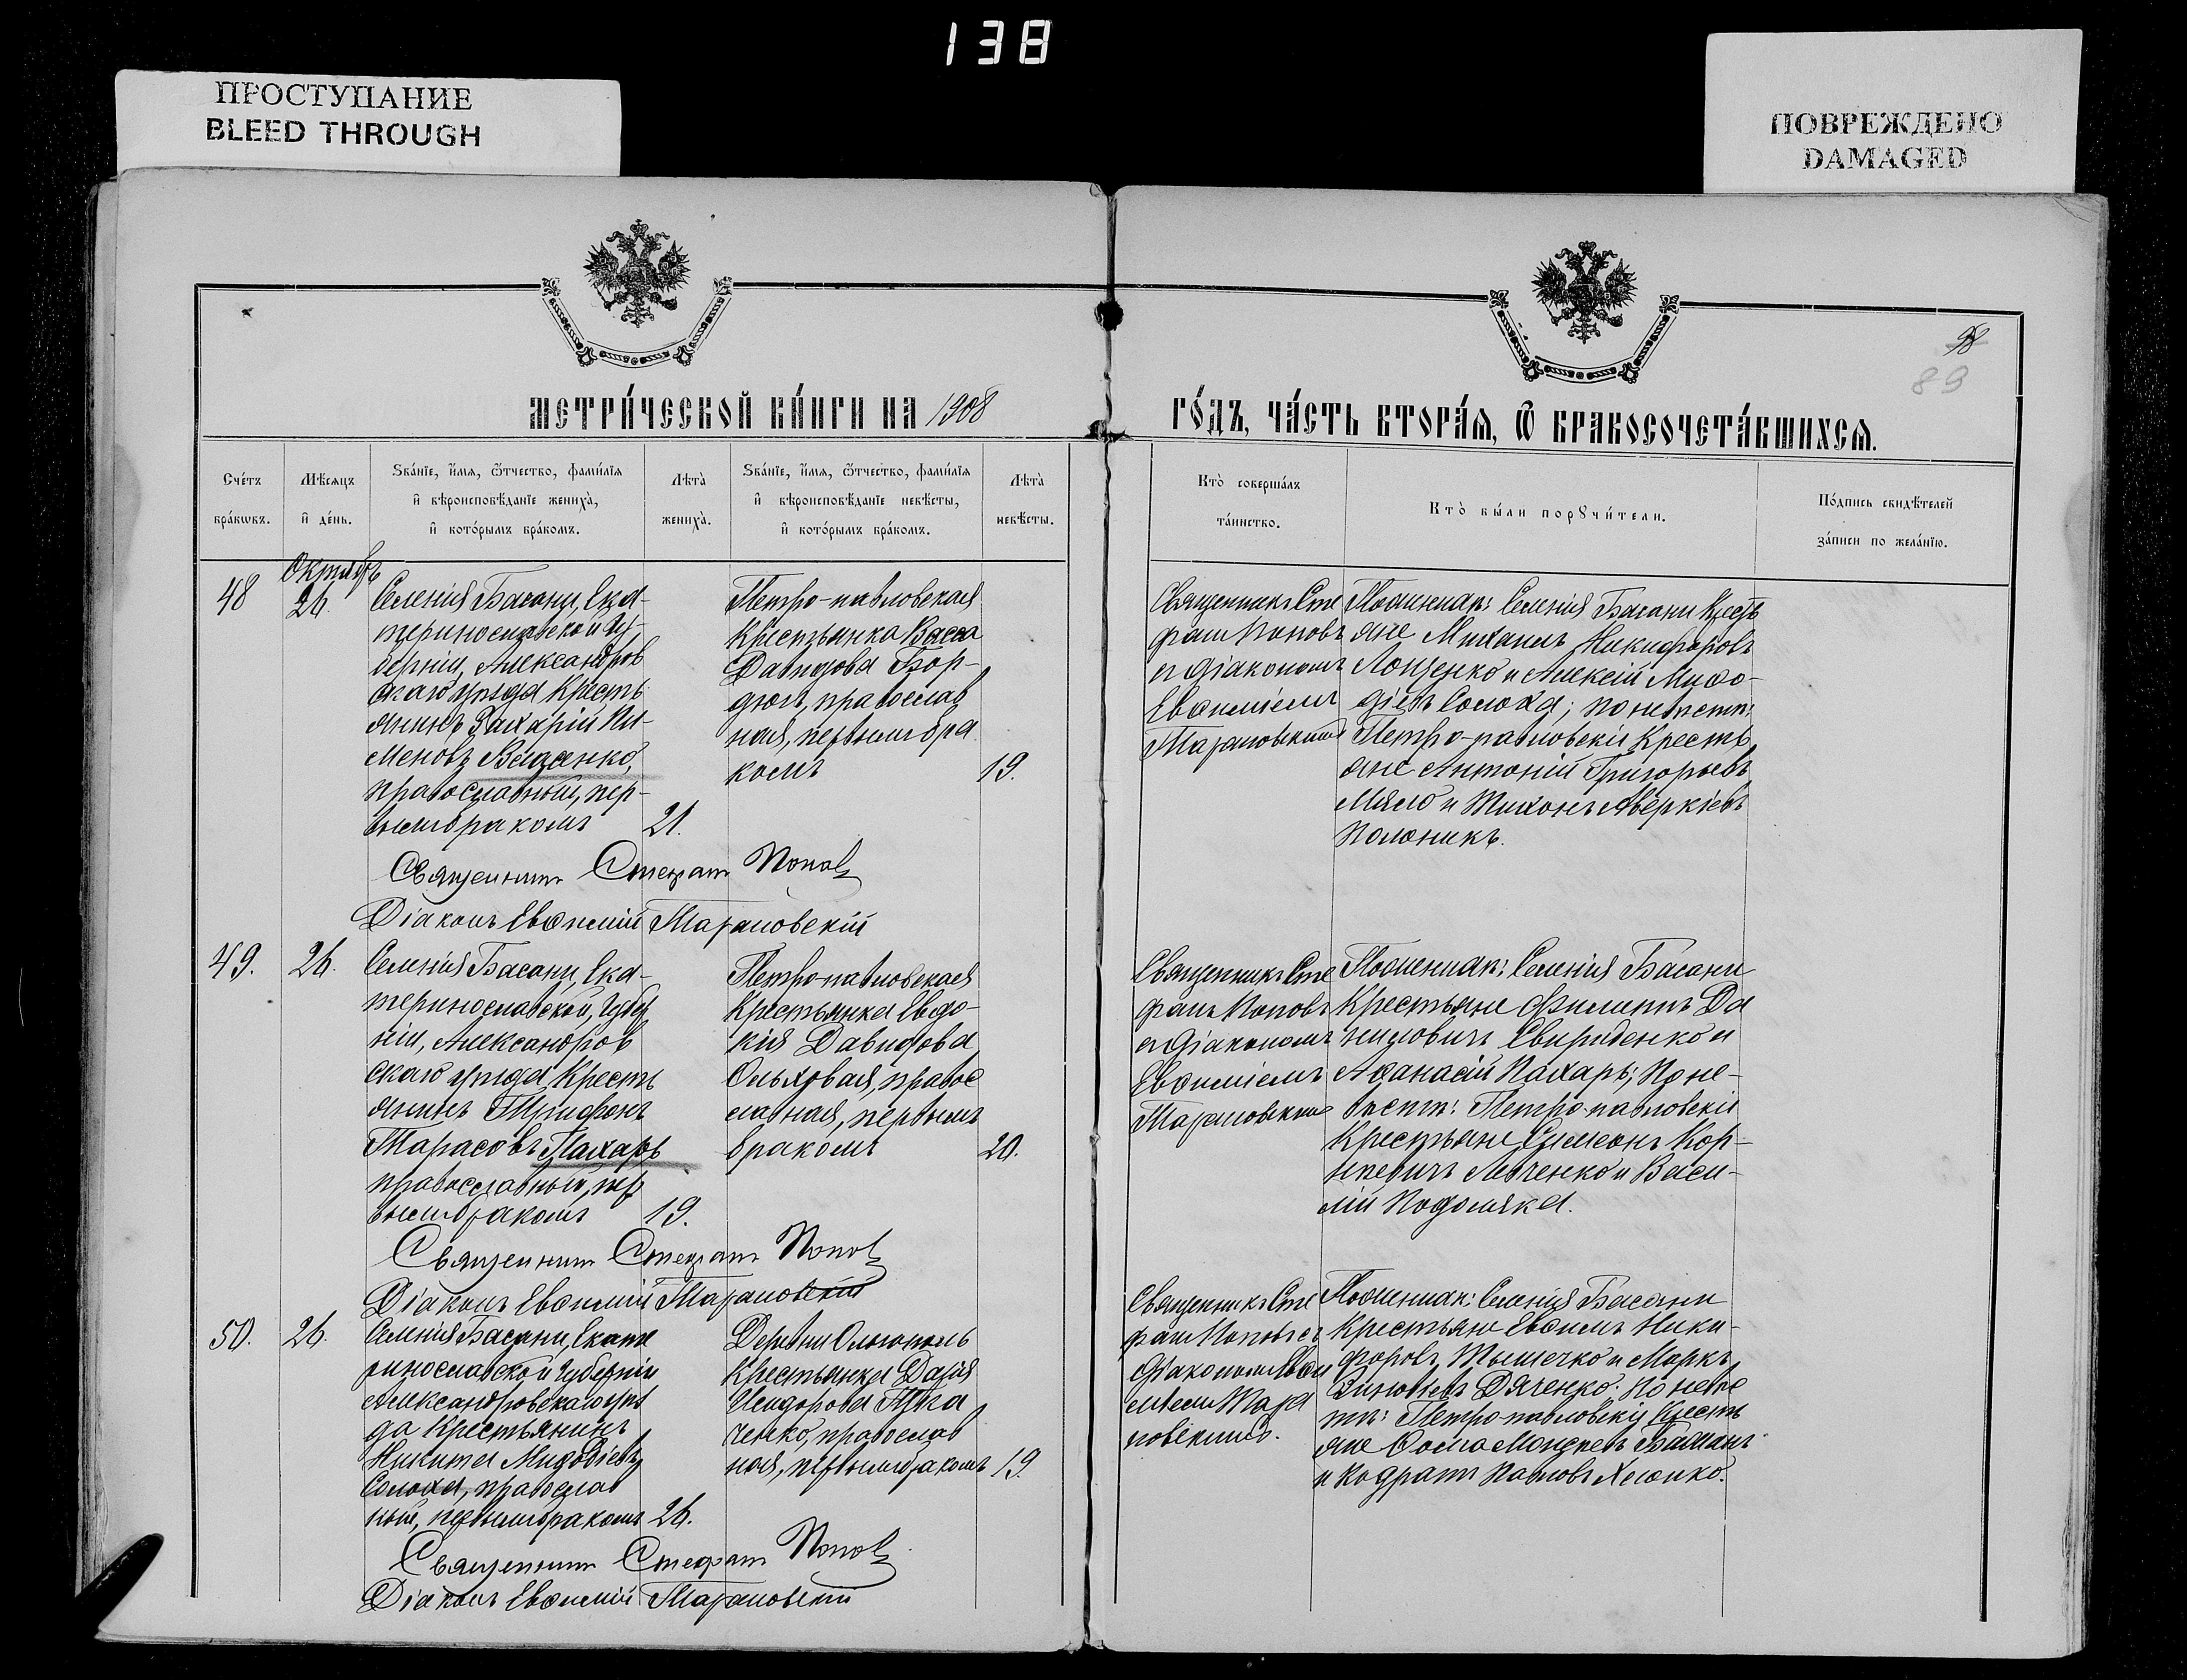 138
ПРОСТУПАНИЕ
BLEED THROUGH
ПОВРЕЖДЕНО
DAMAGED
98
89
МЕТРИ́ЧЕСКОЙ КНИ́ГИ НА 1908
ГО́ДЪ, ЧА́СТЬ ВТОРА́Ѧ, Ѽ БРАКОСОЧЕТА́ВШИХСѦ.
Сче́тъ
бра́кѡвъ.
Мѣ́сѧцъ
и҆ де́нь.
Ѕва́нїе, и҆́мѧ, ѻ҆́тчество, фами́лїѧ
и҆ вѣроисповѣ́данїе жениха̀,
и҆ кото́рымъ бра́комъ.
Лѣта̀
жениха̀.
Ѕва́нїе, и҆́мѧ, ѻ҆́тчество, фами́лїѧ
и҆ вѣроисповѣ́данїе невѣ́сты,
и҆ кото́рымъ бра́комъ.
Лѣта̀
невѣ́сты.
Кто̀ соверша́лъ
та́инство.
Кто̀ бы́ли порꙋчи́тели.
По́дпись свидѣ́телей
за́писи по жела́нїю.
48
Октябрь
26.
Селенія Басани, Ека-
теринославской Гу-
берніи, Александров
скаго уѣзда Кресть
янинъ Захарій Пи-
меновъ
православный, пер-
вымъ бракомъ
21.
Петро-павловская
Крестьянка Васса
Давидова Бор-
дюгъ, православ
ная, первымъ бра
комъ
19.
Священникъ Сте
фанъ Поповъ
съ діакономъ
Евѳиміемъ
Тарановскимъ
По женихѣ: Селенія Басани Кресть
яне Михаилъ Никифоровъ
Лощенко и Алексій Меѳо-
діевъ Солоха; по невѣстѣ:
Петро-павловскіе Кресть
яне Антоній Григорьевъ
Мяло и Тихонъ Аверкіевъ
Полоникъ.
Священникъ Стефанъ Поповъ
Діаконъ Евѳимій Тарановскій
49.
26.
Селенія Басани, Ека-
теринославской, Губер
ніи, Александров
скаго уѣзда, Кресть
янинъ Трифонъ
Тарасовъ Пахарь
православный, пер
вымъ бракомъ
19.
Петро-павловская
Крестьянка Евдо-
кія Давидова
Ольховая, правос
лавная, первымъ
бракомъ
20.
Священникъ Сте
фанъ Поповъ
съ діакономъ
Евѳиміемъ
Тарановскимъ
По женихѣ: Селенія Басани
Крестьяне Филиппъ Да
ниловичъ Свириденко и
Аѳанасій Пахарь; По не-
вѣстѣ: Петро-павловскіе
Крестьяне Симеонъ Кор-
ніевичъ и Васи-
лій Подоляка.
Священникъ Стефанъ Поповъ
Діаконъ Евѳимій Тарановскій
50.
26.
Селенія Басани, Екате
ринославской Губерніи
Александровскаго уѣз
да Крестьянинъ
Никита Меѳодіевъ
Солоха, православ
ный, первымъ бракомъ
26.
Деревни Ольгополь
Крестьянка Дарія
Исидорова
православ
ная, первымъ бракомъ
19.
Священникъ Сте
фанъ Поповъ съ
діакономъ Евѳи
міемъ Тара
новскимъ.
По женихѣ: Селенія Басани
Крестьяне Евѳимъ Ники-
форовъ Тышечко и Маркъ
Зиновіевъ Дяченко. По невѣс
тѣ: Петро-павловскіе Кресть
яне Ѳома Башанъ
и Кодратъ Павловъ
Священникъ Стефанъ Поповъ
Діаконъ Евѳимій Тарановскій